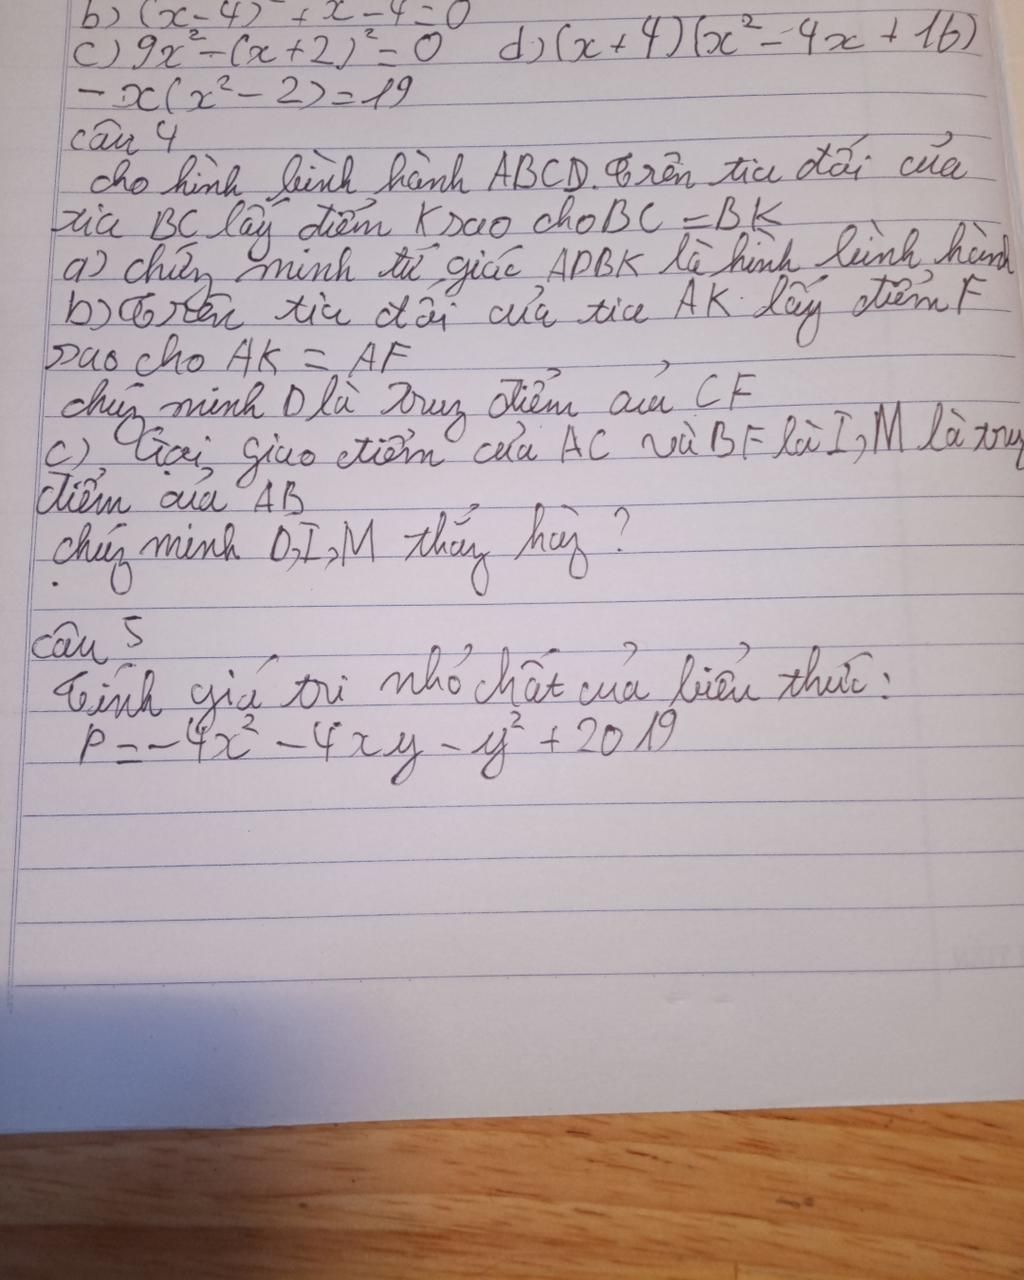 b) (x-4)² + x - 4 = 0
c) 9x² - (x+2)² = 0 d) (x+4)(x² - 4x + 16)
- x(x² - 2) = 19
câu 4
cho hình bình hành ABCD. Trên tia đối của
tia BC lấy điểm K sao cho BC = BK
a) chứng minh tứ giác ADBK là hình bình hành
b) Trên tia đối của tia AK lấy điểm F
sao cho AK = AF
chứng minh D là trung điểm của CF
c) Gọi giao điểm của AC và BF là I, M là trung
điểm của AB
chứng minh D, I, M thẳng hàng ?
câu 5
Tính giá trị nhỏ chất của biểu thức:
P = - 4x² - 4xy - y² + 2019